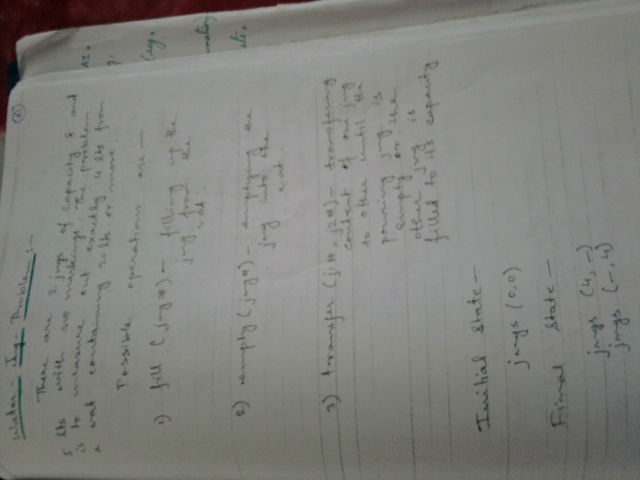 6
Water - Jug - Problem :-
There are 2 jugs of capacity 8 and
5 lts with no markings. The problem
is to measure out exactly 4 lts from
a vat containing 20 lt or more.
Possible operations are —
1) fill (jug#) — filling up the
jug from the
vat.
2) empty (jug#) — emptying the
jug into the
vat.
3) transfer (j1#, j2#) — transfering
content of one jug
to other until the
pouring jug is
empty or the
other jug is
filled to its capacity.
Initial State —
jugs (0,0)
Final State —
jugs (4, -)
jugs (-, 4)